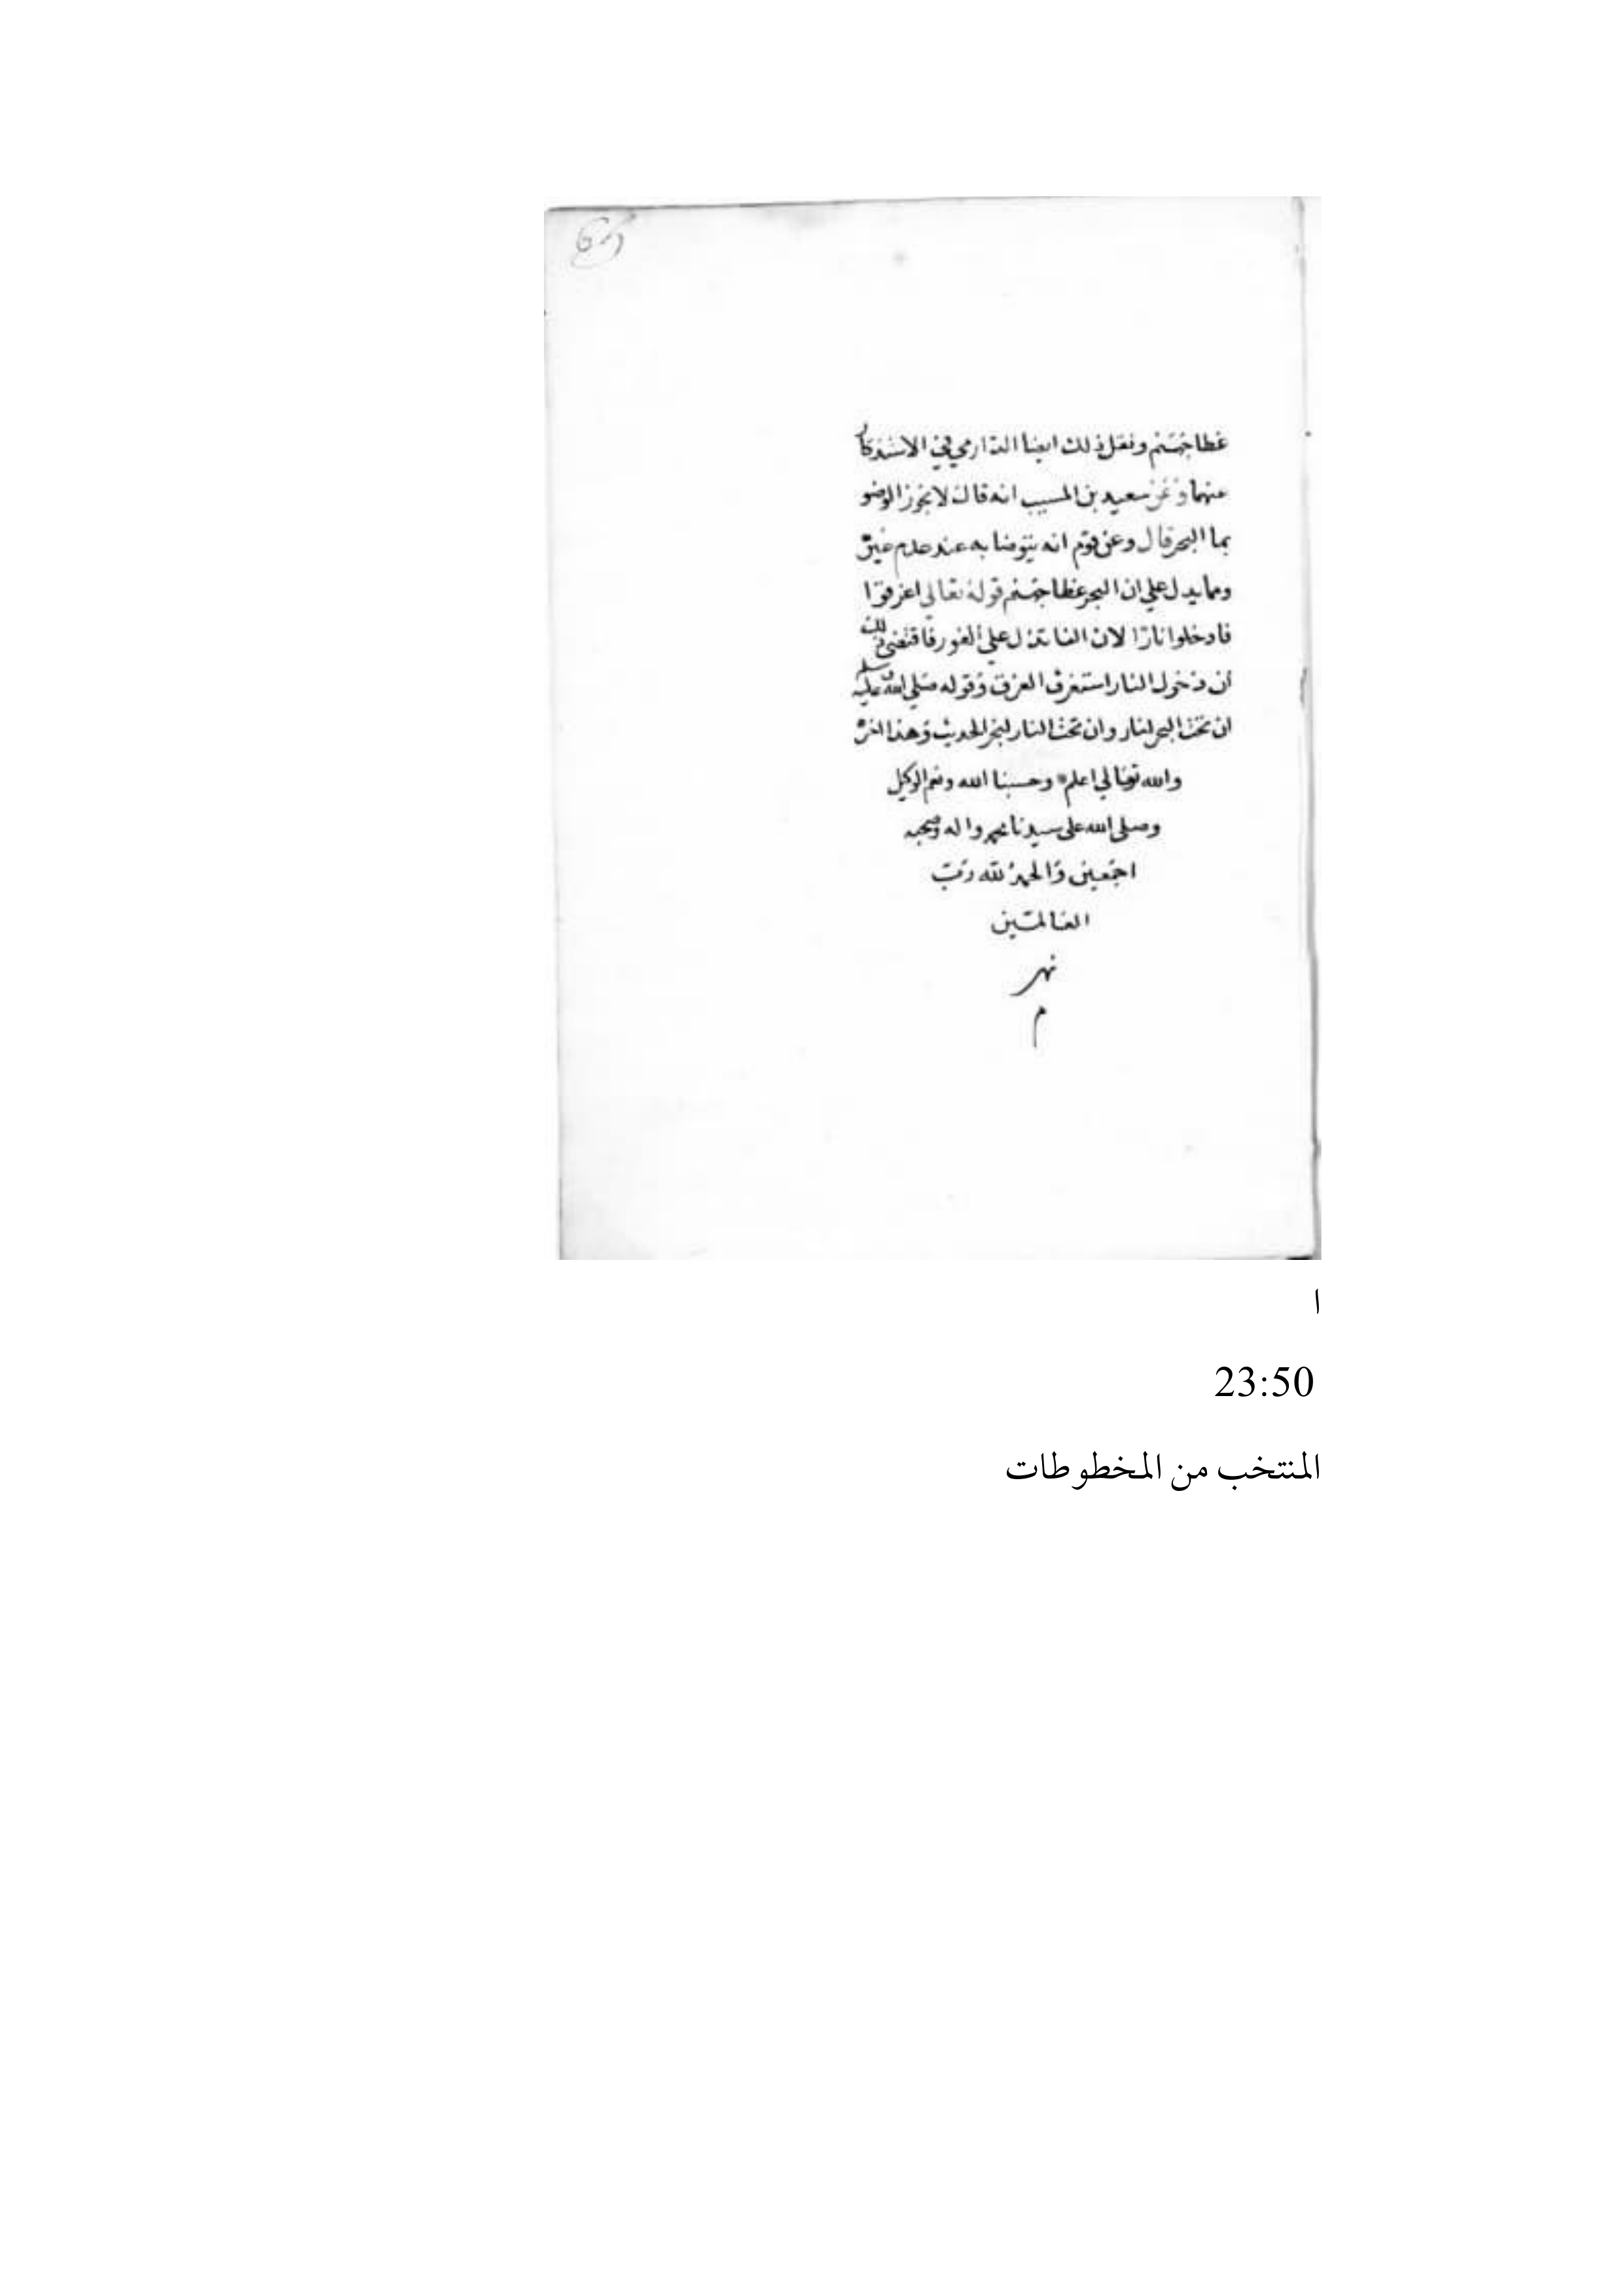 غطا جهنم ونقل ذلك ايضا الدارمي في الاستذكار
عنهما وعن سعيد بن المسيب انه قال لا يجوز الوضو
بما البحر قال وعن قوم انه يتوضا به عند عدم غيره
ومما يدل علي ان البحر غطا جهنم قوله تعالي اغرقوا
فادخلوا نارًا لان الفا تدل علي الفور فاقتضي ذلك
ان دخول النار الغرق وقوله صلي الله عليه وسلم
ان تحت البحر لنار وان تحت النار لبحر الحديث وهذا اخره
والله تعالي اعلم وحسبنا الله ونعم الوكيل
وصلي الله علي سيدنا محمد واله وصحبه
اجمعين والحمد لله رب
العالمين
م
ا
23:50
المنتخب من المخطوطات